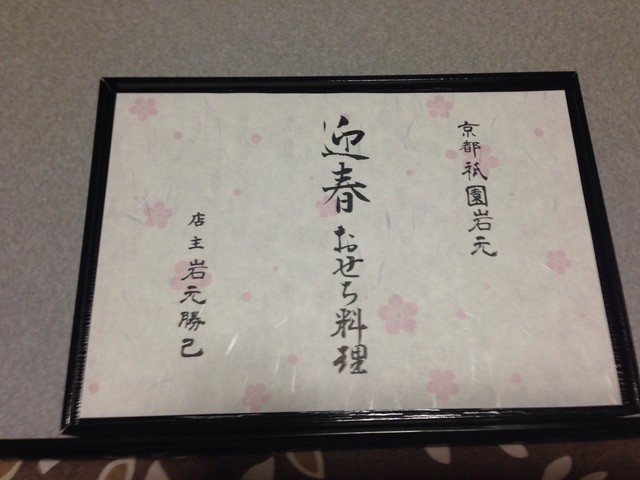 京都祇園岩元
迎春おせち料理
店主岩元勝己